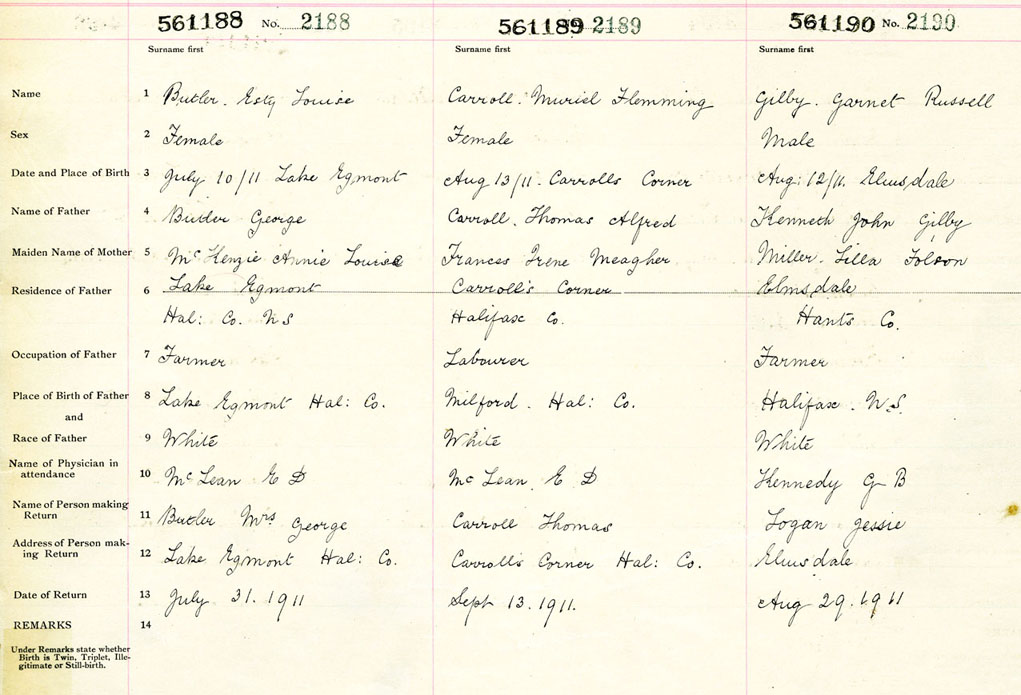 561188 No. 2188 561189 2189 561190 No. 2190
Surname first Surname first Surname first
Name 1 Butler. Louise Carroll. Muriel Flemming Gilby. Garnet Russell
Sex 2 Female Female Male
Date and Place of Birth 3 July 10/11 Lake Egmont Aug 13/11. Carrolls Corner Aug: 12/11. Elmsdale
Name of Father 4 Butler George Carroll. Thomas Alfred Kenneth John Gilby
Maiden Name of Mother 5 McKenzie Annie Louise Frances Irene Meagher Miller. Lilla
Residence of Father 6 Lake Egmont Carroll's Corner Elmsdale
Hal: Co. N S Halifax Co. Hants Co.
Occupation of Father 7 Farmer Labourer Farmer
Place of Birth of Father 8 Lake Egmont Hal: Co. Milford. Hal: Co. Halifax. N S.
and
Race of Father 9 White White White
Name of Physician in
attendance 10 McLean E D McLean. E D Kennedy G B
Name of Person making
Return 11 Butler Mrs George Carroll Thomas Logan Jessie
Address of Person mak-
ing Return 12 Lake Egmont Hal: Co. Carroll's Corner Hal: Co. Elmsdale
Date of Return 13 July 31. 1911 Sept 13. 1911. Aug 29. 1911
REMARKS 14
Under Remarks state whether
Birth is Twin, Triplet, Ille-
gitimate or Still-birth.